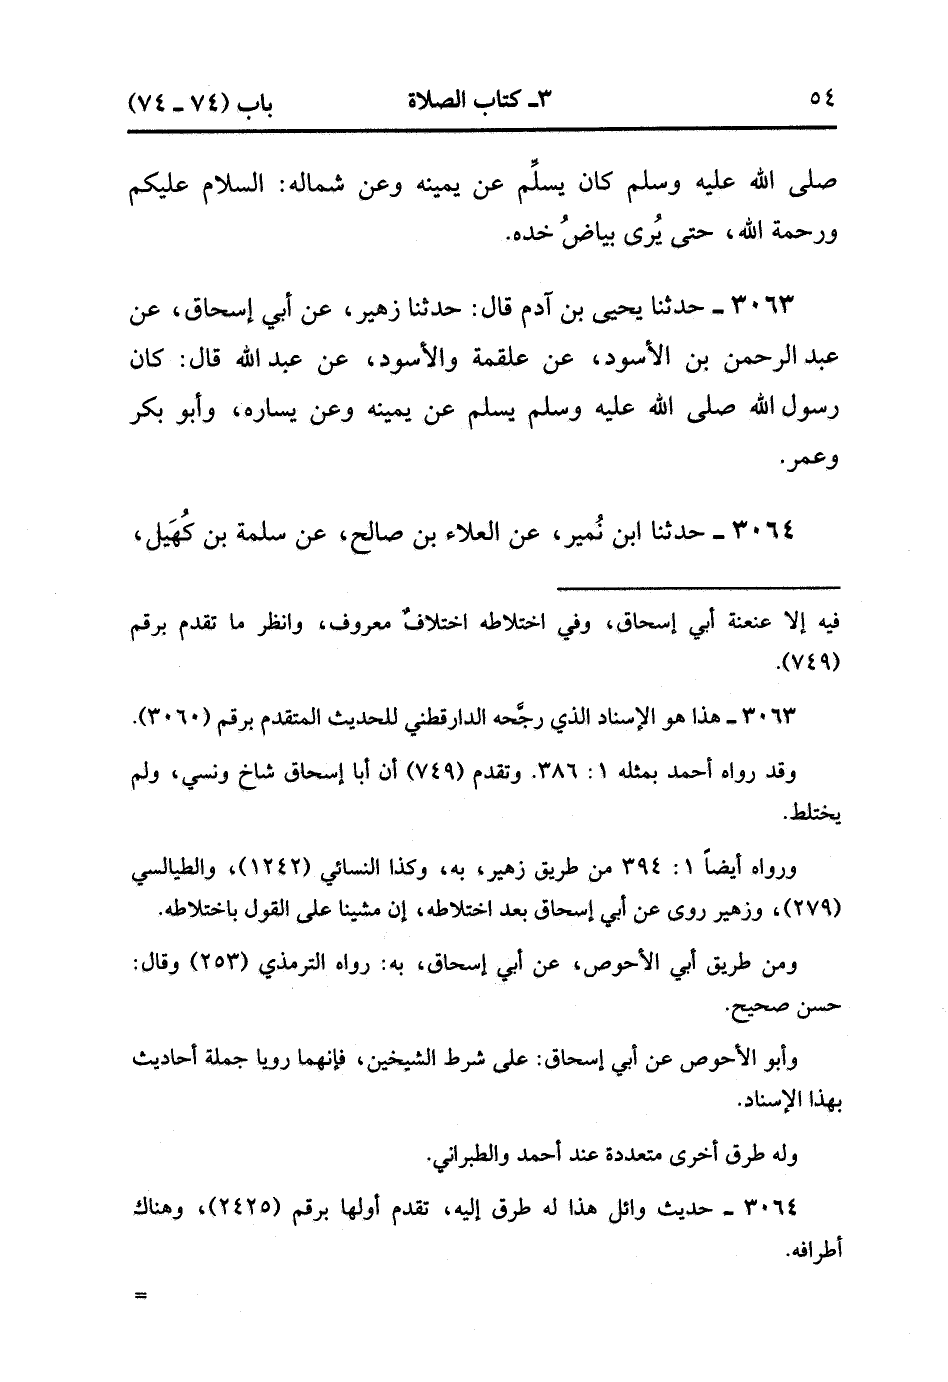 ٥٤ ٣ـ كتاب الصلاة باب (٧٤ ـ ٧٤)
صلى الله عليه وسلم كان يسلِّم عن يمينه وعن شماله: السلام عليكم
ورحمة الله، حتى يُرى بياضُ خده.
٣٠٦٣ ـ حدثنا يحيى بن آدم قال: حدثنا زهير، عن أبي إسحاق، عن
عبد الرحمن بن الأسود، عن علقمة والأسود، عن عبد الله قال: كان
رسول الله صلى الله عليه وسلم يسلم عن يمينه وعن يساره، وأبو بكر
وعمر.
٣٠٦٤ ـ حدثنا ابن نُمير، عن العلاء بن صالح، عن سلمة بن كُهَيل،
فيه إلا عنعنة أبي إسحاق، وفي اختلاطه اختلافٌ معروف، وانظر ما تقدم برقم
(٧٤٩).
٣٠٦٣ ـ هذا هو الإسناد الذي رجَّحه الدارقطني للحديث المتقدم برقم (٣٠٦٠).
وقد رواه أحمد بمثله ١: ٣٨٦. وتقدم (٧٤٩) أن أبا إسحاق شاخ ونسي، ولم
يختلط.
ورواه أيضاً ١: ٣٩٤ من طريق زهير، به، وكذا النسائي (١٢٤٢)، والطيالسي
(٢٧٩)، وزهير روى عن أبي إسحاق بعد اختلاطه، إن مشينا على القول باختلاطه.
ومن طريق أبي الأحوص، عن أبي إسحاق، به: رواه الترمذي (٢٥٣) وقال:
حسن صحيح.
وأبو الأحوص عن أبي إسحاق: على شرط الشيخين، فإنهما رويا جملة أحاديث
بهذا الإسناد.
وله طرق أخرى متعددة عند أحمد والطبراني.
٣٠٦٤ ـ حديث وائل هذا له طرق إليه، تقدم أولها برقم (٢٤٢٥)، وهناك
أطرافه.
=